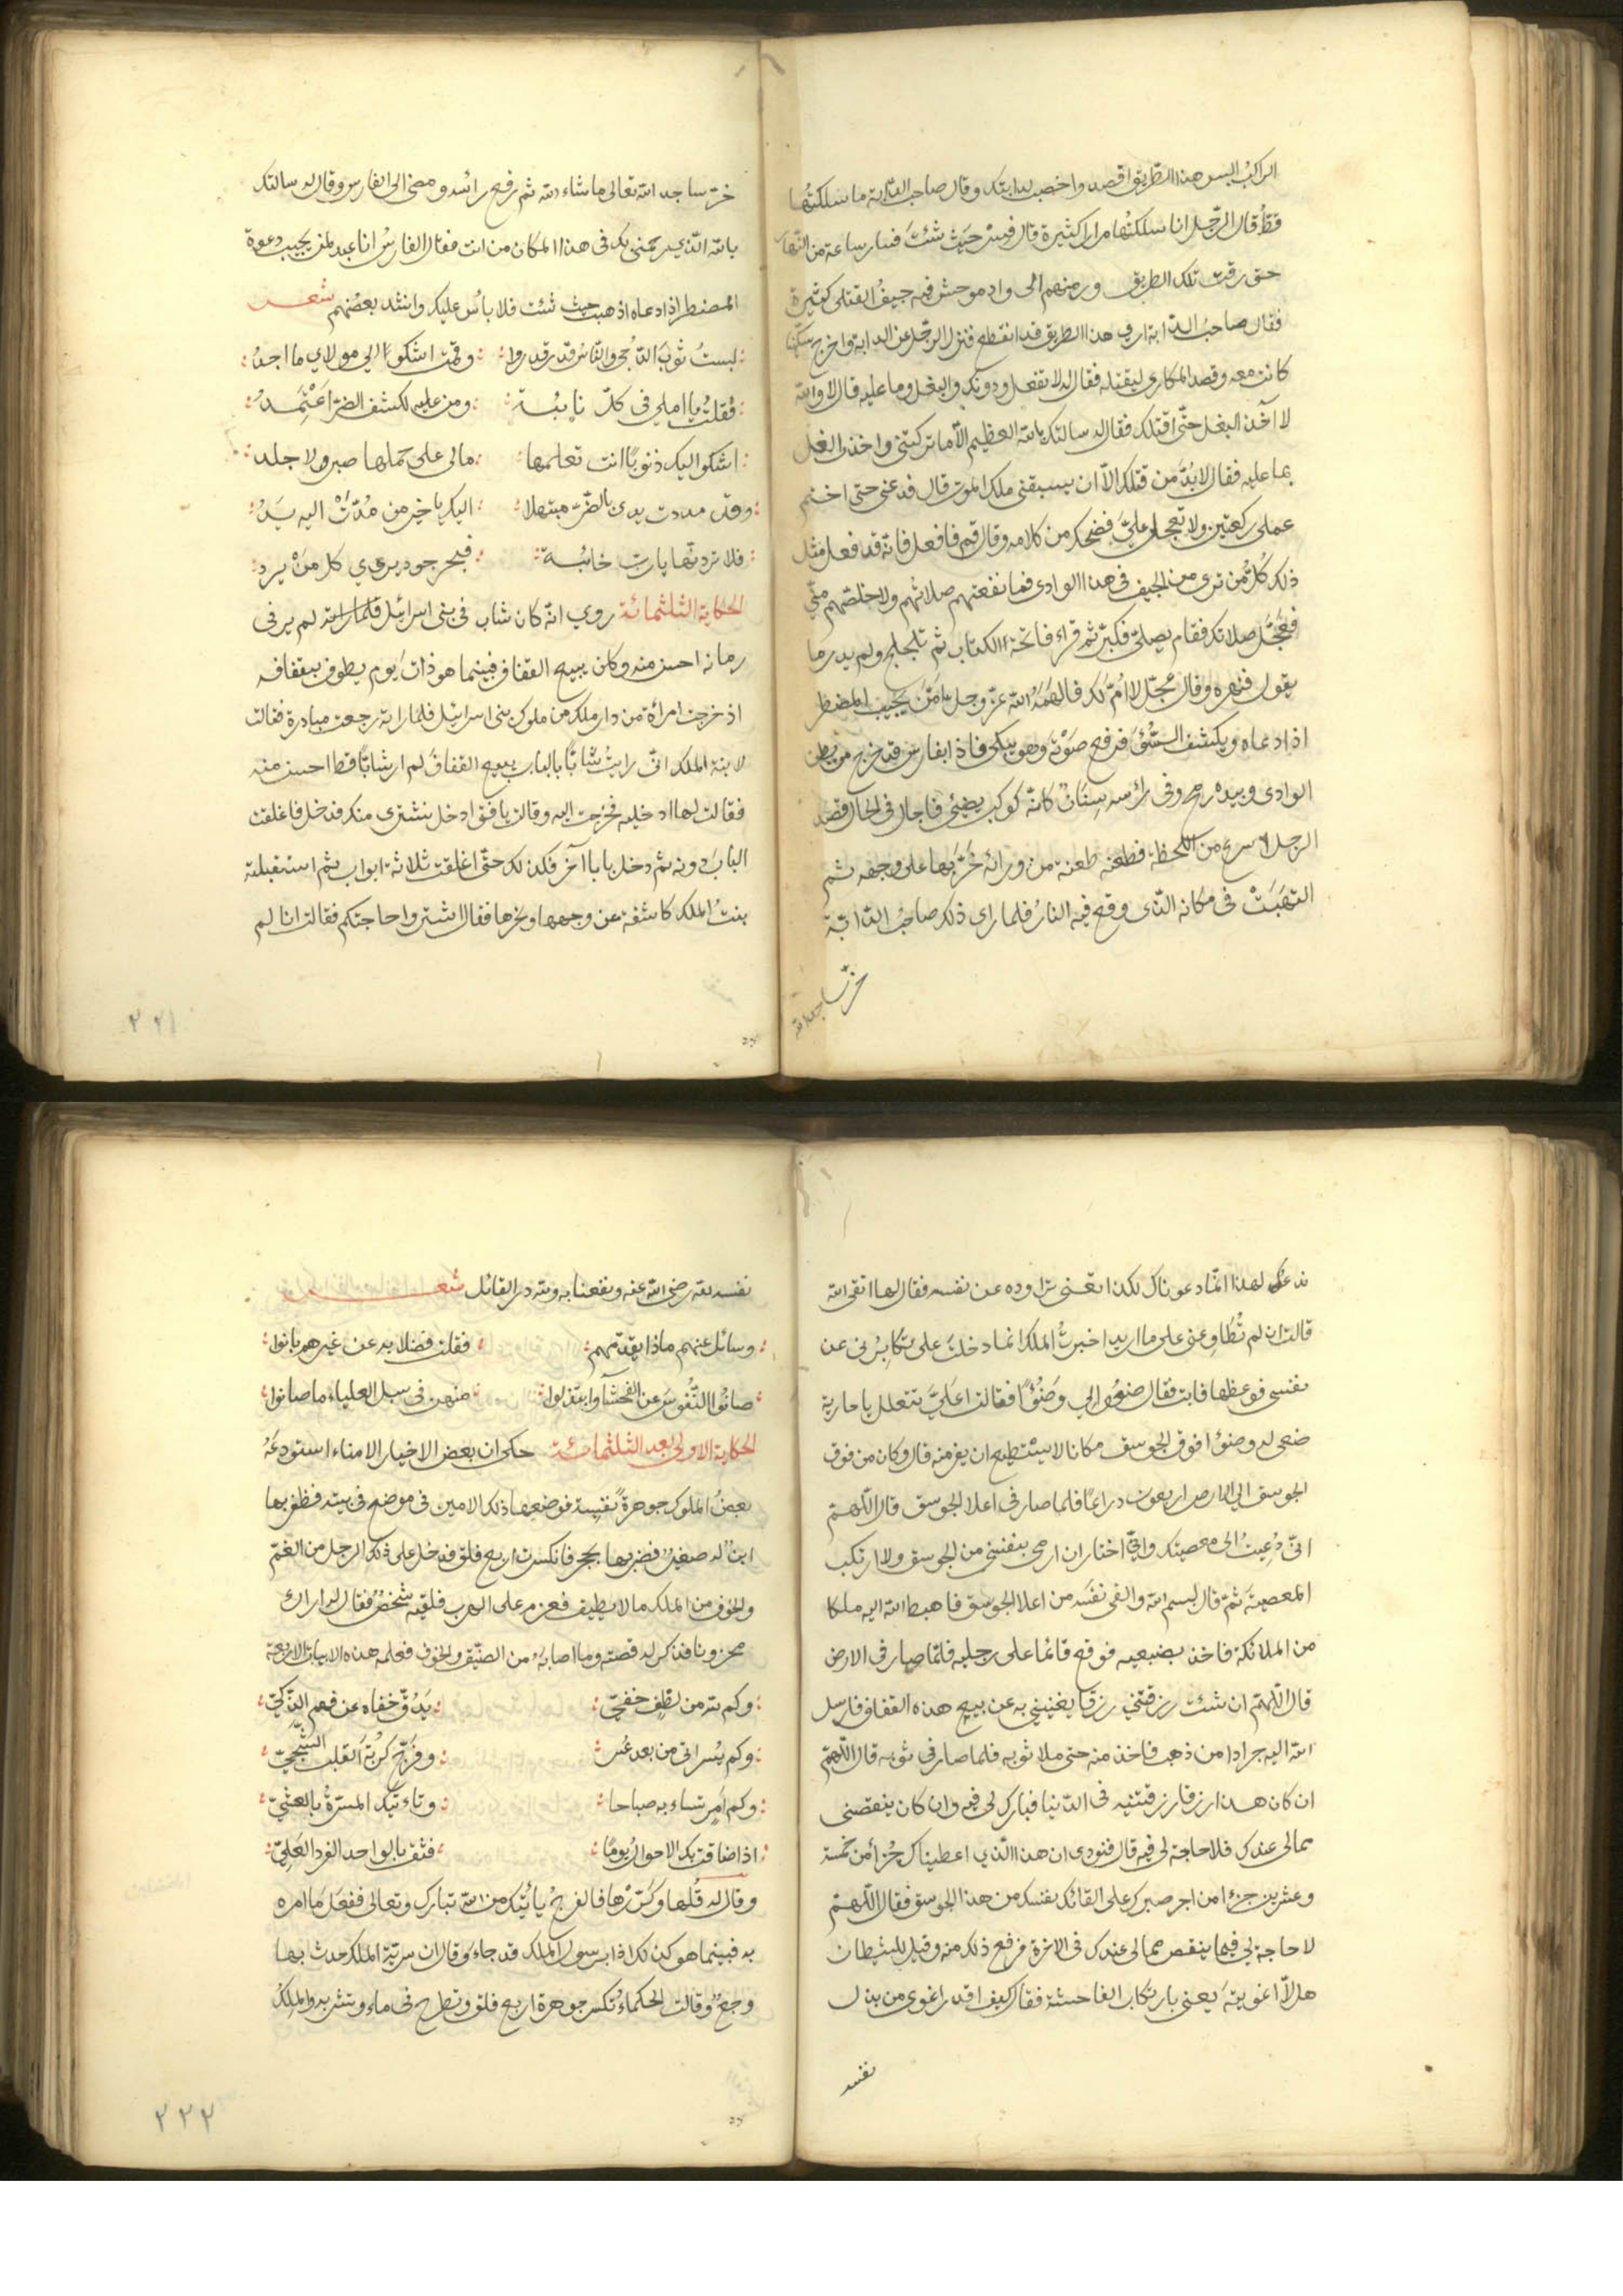 الراكب اليس هذا الطريق اقصد واخصب لدابتك وقال صاحب الدابة ما سلكتُها
قطُّ قال الرّجل انا سلكتُها مرارا كثيرة قال فسرْ حيَث شئتَ فسار ساعة من النهار
حتى رقت تلك الطريق ورمتهم الى وادٍ موحش فيه جيفُ القتلى كثيرة
فقال صاحبُ الدابة ارى هذا الطريق قد انقطع فنزل الرّجل عن الدابة واخرج سكّينا
كانت معه وقصد المكارى ليقتله فقال له لا تفعل ودونك والبغل وما عليه قال لا والله
لا آخذ البغل حتّى اقتلك فقال له سالتك بالله العظيم الّا ما تركتنى واخذت البغل
بما عليه فقال لا بُدَّ من قتلك الّا ان يسبقنى ملك الموت قال فدعنى حتى اختم
عملى ركعتين ولا تعجل علىَّ فضحك من كلامه وقال قم فافعل فانه قد فعل مثل
ذلك كلُّ من ترى من الجيف فى هذا الوادى فما نفعتهم صلاتهم ولا خلصتهم منّى
فعجّل صلاتك فقام يصلّى فكبّر ثم قراء فاتحة الكتاب ثم تلجلج ولم يدر ما
يقول فنهره وقال عجّل لا اُمّ لَك فالهمَهُ الله عزّ وجل امّن يجيب المضطر
اذا دعاه ويكشف السّوٓءَ فرفع صَوْتَه وهو يبكى فاذا بفارس قد خرج من بطن
الوادى وبيده رمح وفى رأسه سِنَانٌ كانّه كوكب يضئ فاجال فى الحال قصد
الرجل لاسرع من اللحظة فطعنه طعنة من ورائه خَرَّ بها على وجهه ثم
التهبَتْ فى مكانه الذى وقع فيه النارُ فلما راى ذلك صاحبُ الدابّة
خرّ ساجدا لله
خرّ ساجدا لله تعالى ما شاء الله ثم رفع رأسه ومضى الى الفارس وقال له سالتك
بالله الّذي رحمنى بك فى هذا المكان من انت فقال الفارسُ انا عبد لمن يجيب دعوة
المضطر اذا دعاه اذهب حيث شئت فلا باس عليك وانشد بعضُهم شعر
لبستُ ثوبَ الدّجى والنّاسُ قد رقدوا وقمت اشكو الى مولاي ما اجدُ
فقلتُ يا املي فى كلّ نايبة ومن عليه لكشف الضرّ اعْتَمِدُ
اشكو اليك ذنوبًا انت تعلمها مالى على حملها صبر ولا جلد
وقد مددت يدى بالضّرّ مبتهلا اليك يا خير من مُدّتْ اليه يَدُ
فلا تردنّها يا ربّ خائبة فبحر جودك يروي كل من يرد
الحكاية الثلثمائة روي انّه كان شاب فى بنى اسرائيل لم ير فى
زمانه احسن منه وكان يبيع القفاف فبينما هو ذات يوم يطوف بقفافه
اذ خرجت امرأة من دار ملك من ملوك بنى اسرائيل فلما راته رجعت مبادرة فقالت
لابنة الملك انّى رايتُ شابًّا بالباب يبيع القفافَ لم ار شابًّا قط احسن منه
فقالت لها ادخليه فخرجت اليه وقالت يا فتى ادخل نشترى منك فدخل فاغلقت
البابَ دونه ثم دخل بابا آخر فكذلك حتّى اغلقت ثلاثة ابواب ثم استقبلته
بنتُ الملك كاشفة عن وجهها ونحرها فقال اشتروا حاجتكم فقالت انا لم
٢٢١
ندعك لهذا انّما دعوناك لكذا يعنى تراوده عن نفسه فقال لها اتقى الله
قالت ان لم تُطَاوِعنى على ما اريد اخبرتُ الملك انما دخلتَ علىّ تكابرُنى عن
نفسى فوعظها فابت فقال ضعوا لي وَضُوْءًا فقالت اعَلَىَّ تتعلل يا جارية
ضعى له وضوْءًا فوق الجوسق مكانا لا يسْتطيع ان يفر منه قال وكان من فوق
الجوسق الي الارض اربعون ذراعًا فلما صار فى اعلا الجوسق قال اللّهم
انّى دُعِيتُ الى معصيتك وانّي اختار ان ارمى بنفسى من الجوسق ولا ارتكب
المعصيةَ ثمّ قال بسم الله والقى نفسَه من اعلا الجوسق فاهبط الله اليه ملكا
من الملائكة فاخذ بضبعيه فوقع قائما على رجليه فلمّا صار فى الارض
قال اللّهمّ ان شئت رزقتني رزقا يغنيني به عن بيع هذه القفاف فارسل
الله اليه جرادا من ذهب فاخذ منه حتى ملا ثوبه فلما صار فى ثوبه قال اللّهمّ
ان كان هذا رزقا رزقتنيه فى الدّنيا فبارك لى فيه وان كان ينقصنى
ممالى عندك فلا حاجة لى فيه قال فنودى ان هذا الّذي اعطيناك جُزأ من خمسة
وعشرين جزءا من اجر صبرك على القائك نفسك من هذا الجوسق فقال اللّهمّ
لا حاجة لي فيما ينقص ممالى عندك فى الاخرة فرفع ذلك منه وقيل للشيطان
هلّا اغويتَه يعنى بارتكاب الفاحشة فقال كيف اقدر اغوى من بذل
نفسه
نفسه لله رضى الله عنه ونفعنا به ولله در القائل شعر
وسائل عنهم ماذا يقدّمهم فقلت فضلا به عن غيرهم بانوا
صانُوا النّفوسَ عن الفحشآ وابتذلوا منهن فى سبل العلياء ما صانوا
الحكاية الاولى بعد الثلثمائة حكى ان بعض الاخيار الامناء استودعَهُ
بعضُ الملوك جوهرة نفيسة فوضعها ذلك الامين فى موضع فى بيته فظفر بها
ابنٌ له صغيرٌ فضربها بحجر فانكسرت اربع فلق فدخل على ذلك الرجل من الغمّ
والخوف من الملك ما لا يطيق فعزم على الهرب فلقيه شخصٌ فقال له اراك
محزونا فذكر له قصته وما اصابه من الضيّق والخوف فعلمه هذه الابيات الاربعة
وكم لله من لطف خفىّ يَدُقّ خفاه عن فهم الذّكيّ
وكم يُسر اتى من بعد عُسر وفَرّج كُرْبَةَ القلب الشّجيّ
وكم امرٍ تساء به صباحا وتاءتيك المسرّة بالعشيّ
اذا ضاقت بك الاحوالُ يومًا فثق بالواحد الفرد العَليّ
وقال له قُلها وكرّرها فالفرجُ يأتيك من الله تبارك وتعالى ففعَل مَا امره
به فبينما هو كذلك اذا برسول الملك قد جاء وقال ان سريّة الملك حدث بها
وجعٌ وقالت الحكماءُ تكسر جوهرة اربع فلق وتطرح فى ماء وتشربه والملكُ
٢٢٢